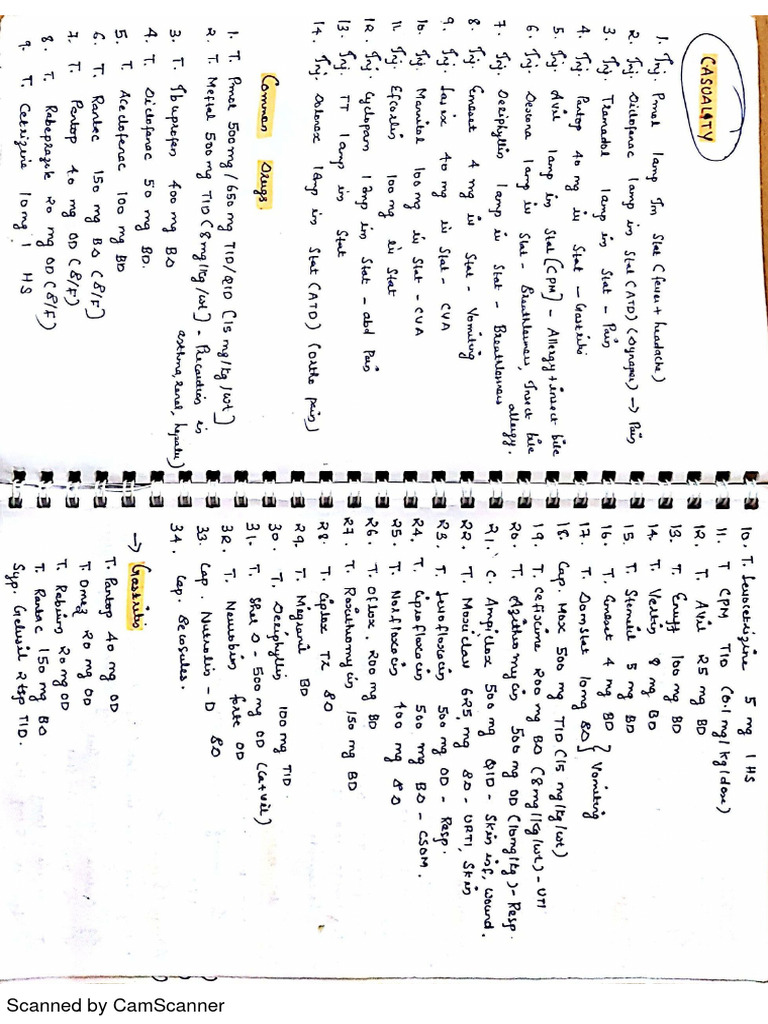 CASUALITY
1. Inj. Pmol 1amp Im Stat (fever + headache)
2. Inj. Diclofenac 1amp im Stat (ATD) (Dynapar) → Pain
3. Inj. Tramadol 1amp im Stat - Pain
4. Inj. Pantop 40 mg iv Stat - Gastritis
5. Inj. Avil 1amp im Stat [CPM] - Allergy + insect bite
6. Inj. Dexona 1amp iv Stat - Breathlessness, Insect bite allergy.
7. Inj. Deriphyllin 1amp iv Stat - Breathlessness
8. Inj. Emeset 4 mg iv Stat - Vomiting
9. Inj. Lasix 40 mg iv Stat - CVA
10. Inj. Mannitol 100 mg iv Stat - CVA
11. Inj. Efcorlin 100 mg iv Stat
12. Inj. Cyclopam 1amp im Stat - abd Pain
13. Inj. TT 1amp im Stat
14. Inj. Dolonex 1amp im Stat (ATD) (ortho pain)
Common Drugs.
1. T. Pmol 500mg / 650 mg TID/QID (15 mg/kg/wt)
2. T. Meftal 500 mg TID (8 mg/kg/wt) - Precaution in
asthma, renal, hepatic
3. T. Ibuprofen 400 mg BD
4. T. Diclofenac 50 mg BD.
5. T. Aceclofenac 100 mg BD
6. T. Rantac 150 mg BD (B/F)
7. T. Pantop 40 mg OD (B/F)
8. T. Rabeprazole 20 mg OD (B/F)
9. T. Cetrizine 10 mg 1 HS
10. T. Levocetrizine 5 mg 1 HS
11. T CPM TID (0.1 mg/kg/dose)
12. T. Avil 25 mg BD
13. T. Enuff 100 mg BD
14. T. Vertin 8 mg BD
15. T. Stemetil 5 mg BD
16. T. Emeset 4 mg BD
17. T. Domstat 10mg BD } Vomiting
18. Cap. Mox 500 mg TID (15 mg/kg/wt)
19. T. Cefixime 200 mg BD (8 mg/kg/wt) - UTI
20. T. Azithromycin 500 mg OD (10mg/kg) - Resp.
21. C. Ampiclox 500 mg QID - Skin inf, wound.
22. T. Moxiclav 625 mg BD - URTI, Skin
23. T. Levofloxacin 500 mg OD - Resp.
24. T. Ciprofloxacin 500 mg BD - CSOM.
25. T. Norfloxacin 400 mg BD
26. T. Oflox. 200 mg BD
27. T. Roxithromycin 150 mg BD
28. T. Ciplox TZ BD
29. T. Megranil BD
30. T. Deriphyllin 100 mg TID.
31. T. Shel D - 500 mg OD (Ca+Vit)
32. T. Neurobion forte OD
33. Cap. Nutrolin - D BD
34. Cap. Becosules.
→ Gastritis
T. Pantop 40 mg OD
T. Omez 20 mg OD
T. Rabium 20 mg OD
T. Rantac 150 mg BD
Syp. Gelusil 2tsp TID.
Scanned by CamScanner